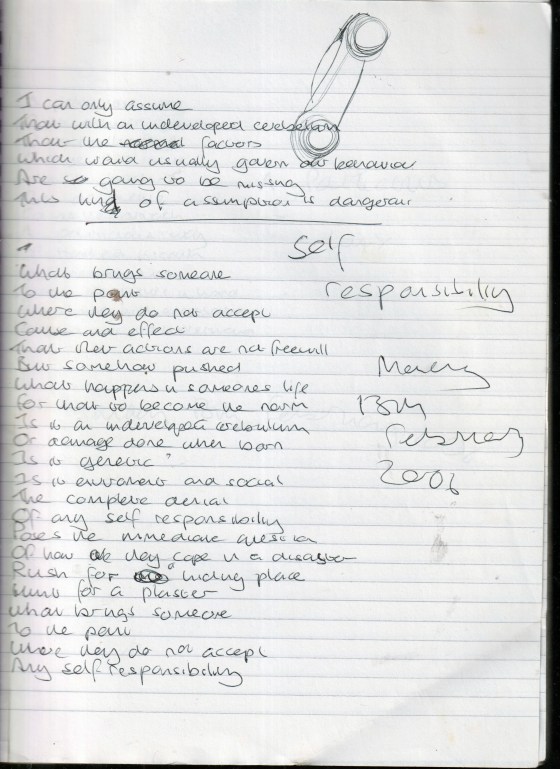 I can only assume
That with an indeveloped cerebellum
That the factors
Which would usually govern our behaviour
Are going to be missing
This kind of assumption is dangerous
Self
responsibility
What brings someone
To the point
Where they do not accept
Cause and effect
That their actions are not freewill
But somehow pushed
What happens in someones life
For that to become the norm
Is it an indeveloped cerebullum
Or damage done when born
Is it genetic
Is it enviroment and social
The complete denial
Of any self responsibility
Poses the immediate question
Of how they cope in a disaster
Rush for hiding place
Hunt for a plaster
What brings someone
To the point
Where they do not accept
Any self responsibility
Monday
13th
February
2006